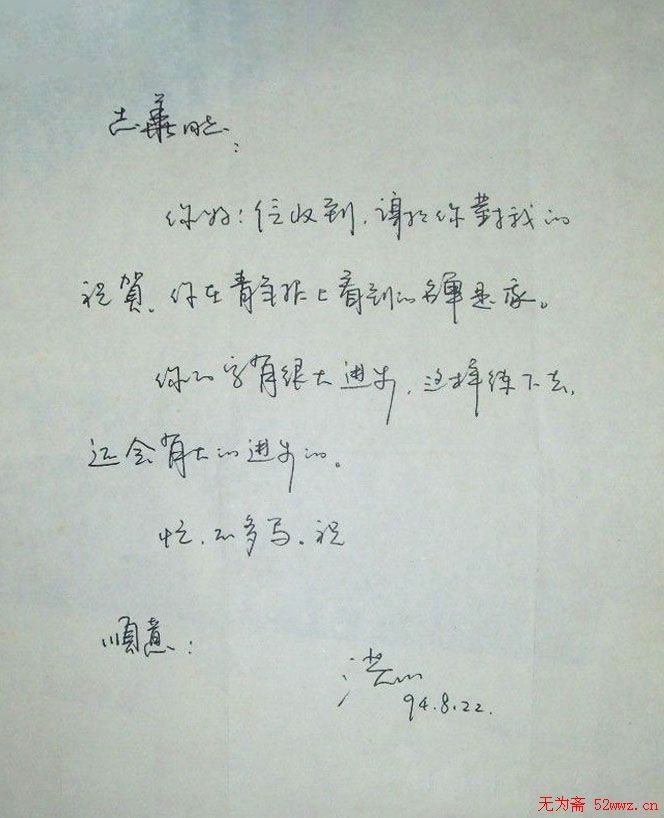 志華同志:
你好!信收到,謝謝你對我的
祝賀。你在青年报上看到的名單是我。
你的字有很大進步,这样練下去,
还会有大的進步的。
忙,不多写。祝
順意:
94.8.22.
无为斋 52wwz.cn